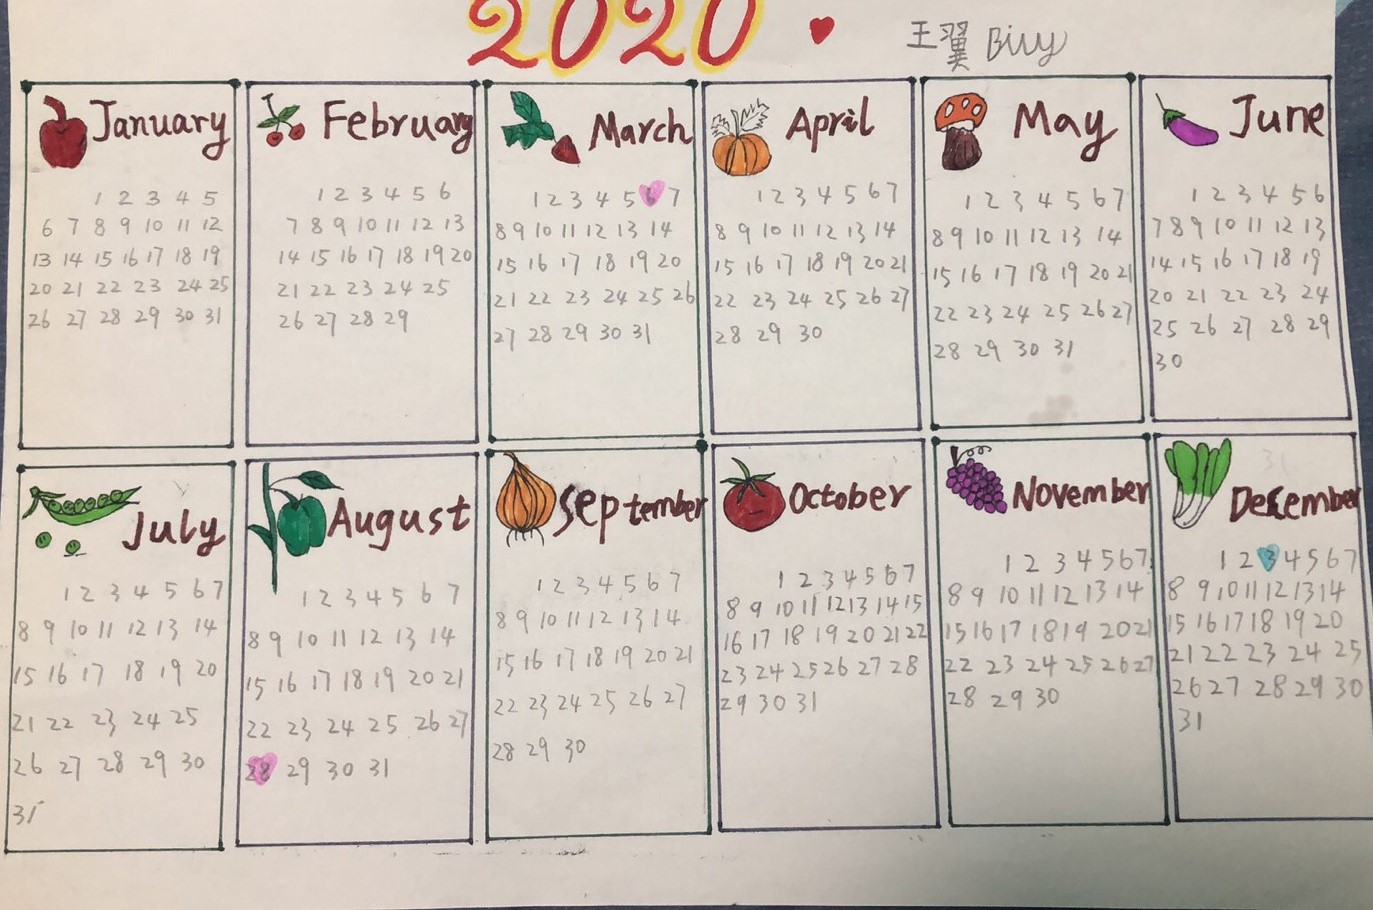 2020
王翼 Billy
January
1 2 3 4 5
6 7 8 9 10 11 12
13 14 15 16 17 18 19
20 21 22 23 24 25
26 27 28 29 30 31
February
1 2 3 4 5 6
7 8 9 10 11 12 13
14 15 16 17 18 19 20
21 22 23 24 25
26 27 28 29
March
1 2 3 4 5 6 7
8 9 10 11 12 13 14
15 16 17 18 19 20
21 22 23 24 25 26
27 28 29 30 31
April
1 2 3 4 5 6 7
8 9 10 11 12 13 14
15 16 17 18 19 20 21
22 23 24 25 26 27
28 29 30
May
1 2 3 4 5 6 7
8 9 10 11 12 13 14
15 16 17 18 19 20 21
22 23 24 25 26 27
28 29 30 31
June
1 2 3 4 5 6
7 8 9 10 11 12 13
14 15 16 17 18 19
20 21 22 23 24
25 26 27 28 29
30
July
1 2 3 4 5 6 7
8 9 10 11 12 13 14
15 16 17 18 19 20
21 22 23 24 25
26 27 28 29 30
31
August
1 2 3 4 5 6 7
8 9 10 11 12 13 14
15 16 17 18 19 20 21
22 23 24 25 26 27
28 29 30 31
September
1 2 3 4 5 6 7
8 9 10 11 12 13 14
15 16 17 18 19 20 21
22 23 24 25 26 27
28 29 30
October
1 2 3 4 5 6 7
8 9 10 11 12 13 14 15
16 17 18 19 20 21 22
23 24 25 26 27 28
29 30 31
November
1 2 3 4 5 6 7
8 9 10 11 12 13 14
15 16 17 18 19 20 21
22 23 24 25 26 27
28 29 30
December
1 2 3 4 5 6 7
8 9 10 11 12 13 14
15 16 17 18 19 20
21 22 23 24 25
26 27 28 29 30
31